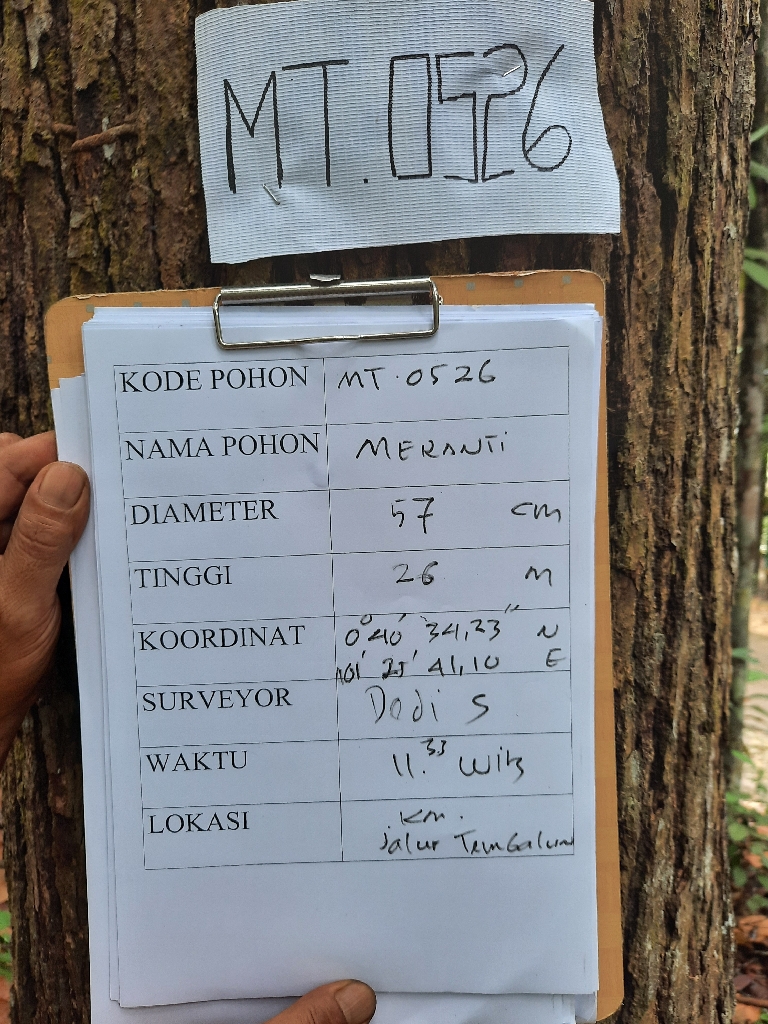 MT.0526
KODE POHON MT.0526
NAMA POHON MERANTI
DIAMETER 57 cm
TINGGI 26 m
KOORDINAT 0°40' 34,23" N
41,10 E
SURVEYOR Dodi S
WAKTU 11.33 Wib
LOKASI Km.
jalur